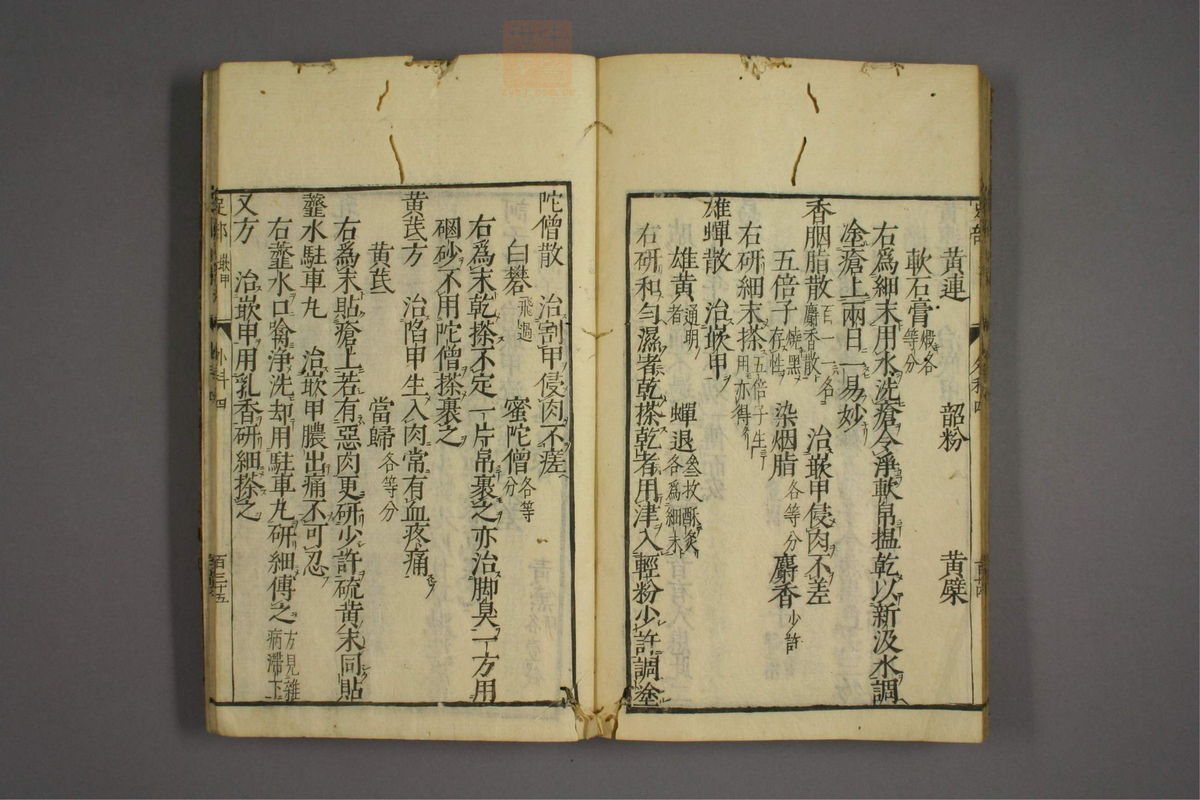 黄連 韶粉 黄檗
軟石膏煅各等分
右爲細末用水洗瘡令淨軟帛揾乾以新汲水調
塗瘡上兩日一易妙
香胭脂散一名麝香散 治嵌甲侵肉不差
五倍子燒黑存性 染烟脂各等分 麝香少許
右研細末搽五倍子生用亦得
雄蟬散 治嵌甲
雄黄通明者 蟬退叁枚酥炙各爲細末
右研和勻濕者乾搽乾者用津入輕粉少許調塗
陀僧散 治割甲侵肉不瘥
白礬飛過 蜜陀僧各等分
右爲末乾搽不定一片帛裹之亦治脚臭一方用
硇砂不用陀僧搽裹之
黄芪方 治陷甲生入肉常有血疼痛
黄芪 當歸各等分
右爲末貼瘡上若有惡肉更研少許硫黄末同貼
虀水駐車丸 治嵌甲膿出痛不可忍
右虀水口噙淨洗却用駐車丸研細傅之方見雜病滯下
又方 治嵌甲用乳香研細搽之
足部 嵌甲
百三十五